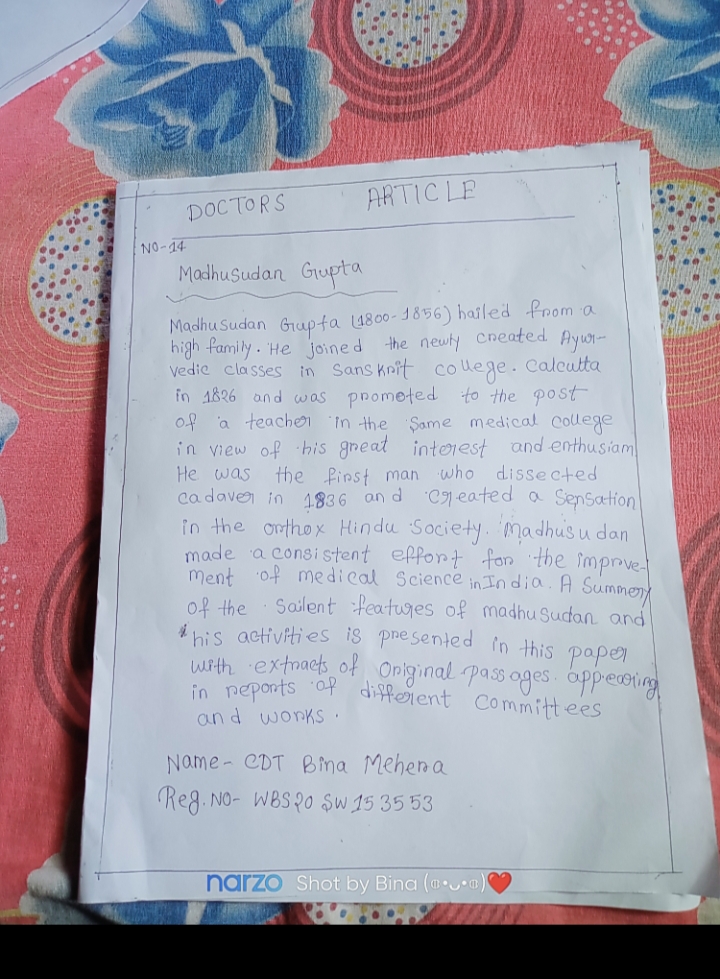 DOCTORS ARTICLE
NO-14
Madhusudan Gupta
Madhusudan Gupta (1800-1856) hailed from a
high family. He joined the newly created Ayur-
vedic classes in Sanskrit college. Calcutta
in 1826 and was promoted to the post
of a teacher in the same medical college
in view of his great interest and enthusiam
He was the first man who dissected
cadaver in 1836 and created a Sensation
in the orthox Hindu Society. Madhusudan
made a consistent effort for the improve-
ment of medical Science in India. A Summery
of the Sailent features of madhusudan and
his activities is presented in this paper
with extracts of Original passages. appearing
in reports of different Committees
and works.
Name- CDT Bina Mehera
Reg. NO- WBS20 SW 153553
narzo Shot by Bina (⁠◍⁠•⁠ᴗ⁠•⁠◍⁠)❤